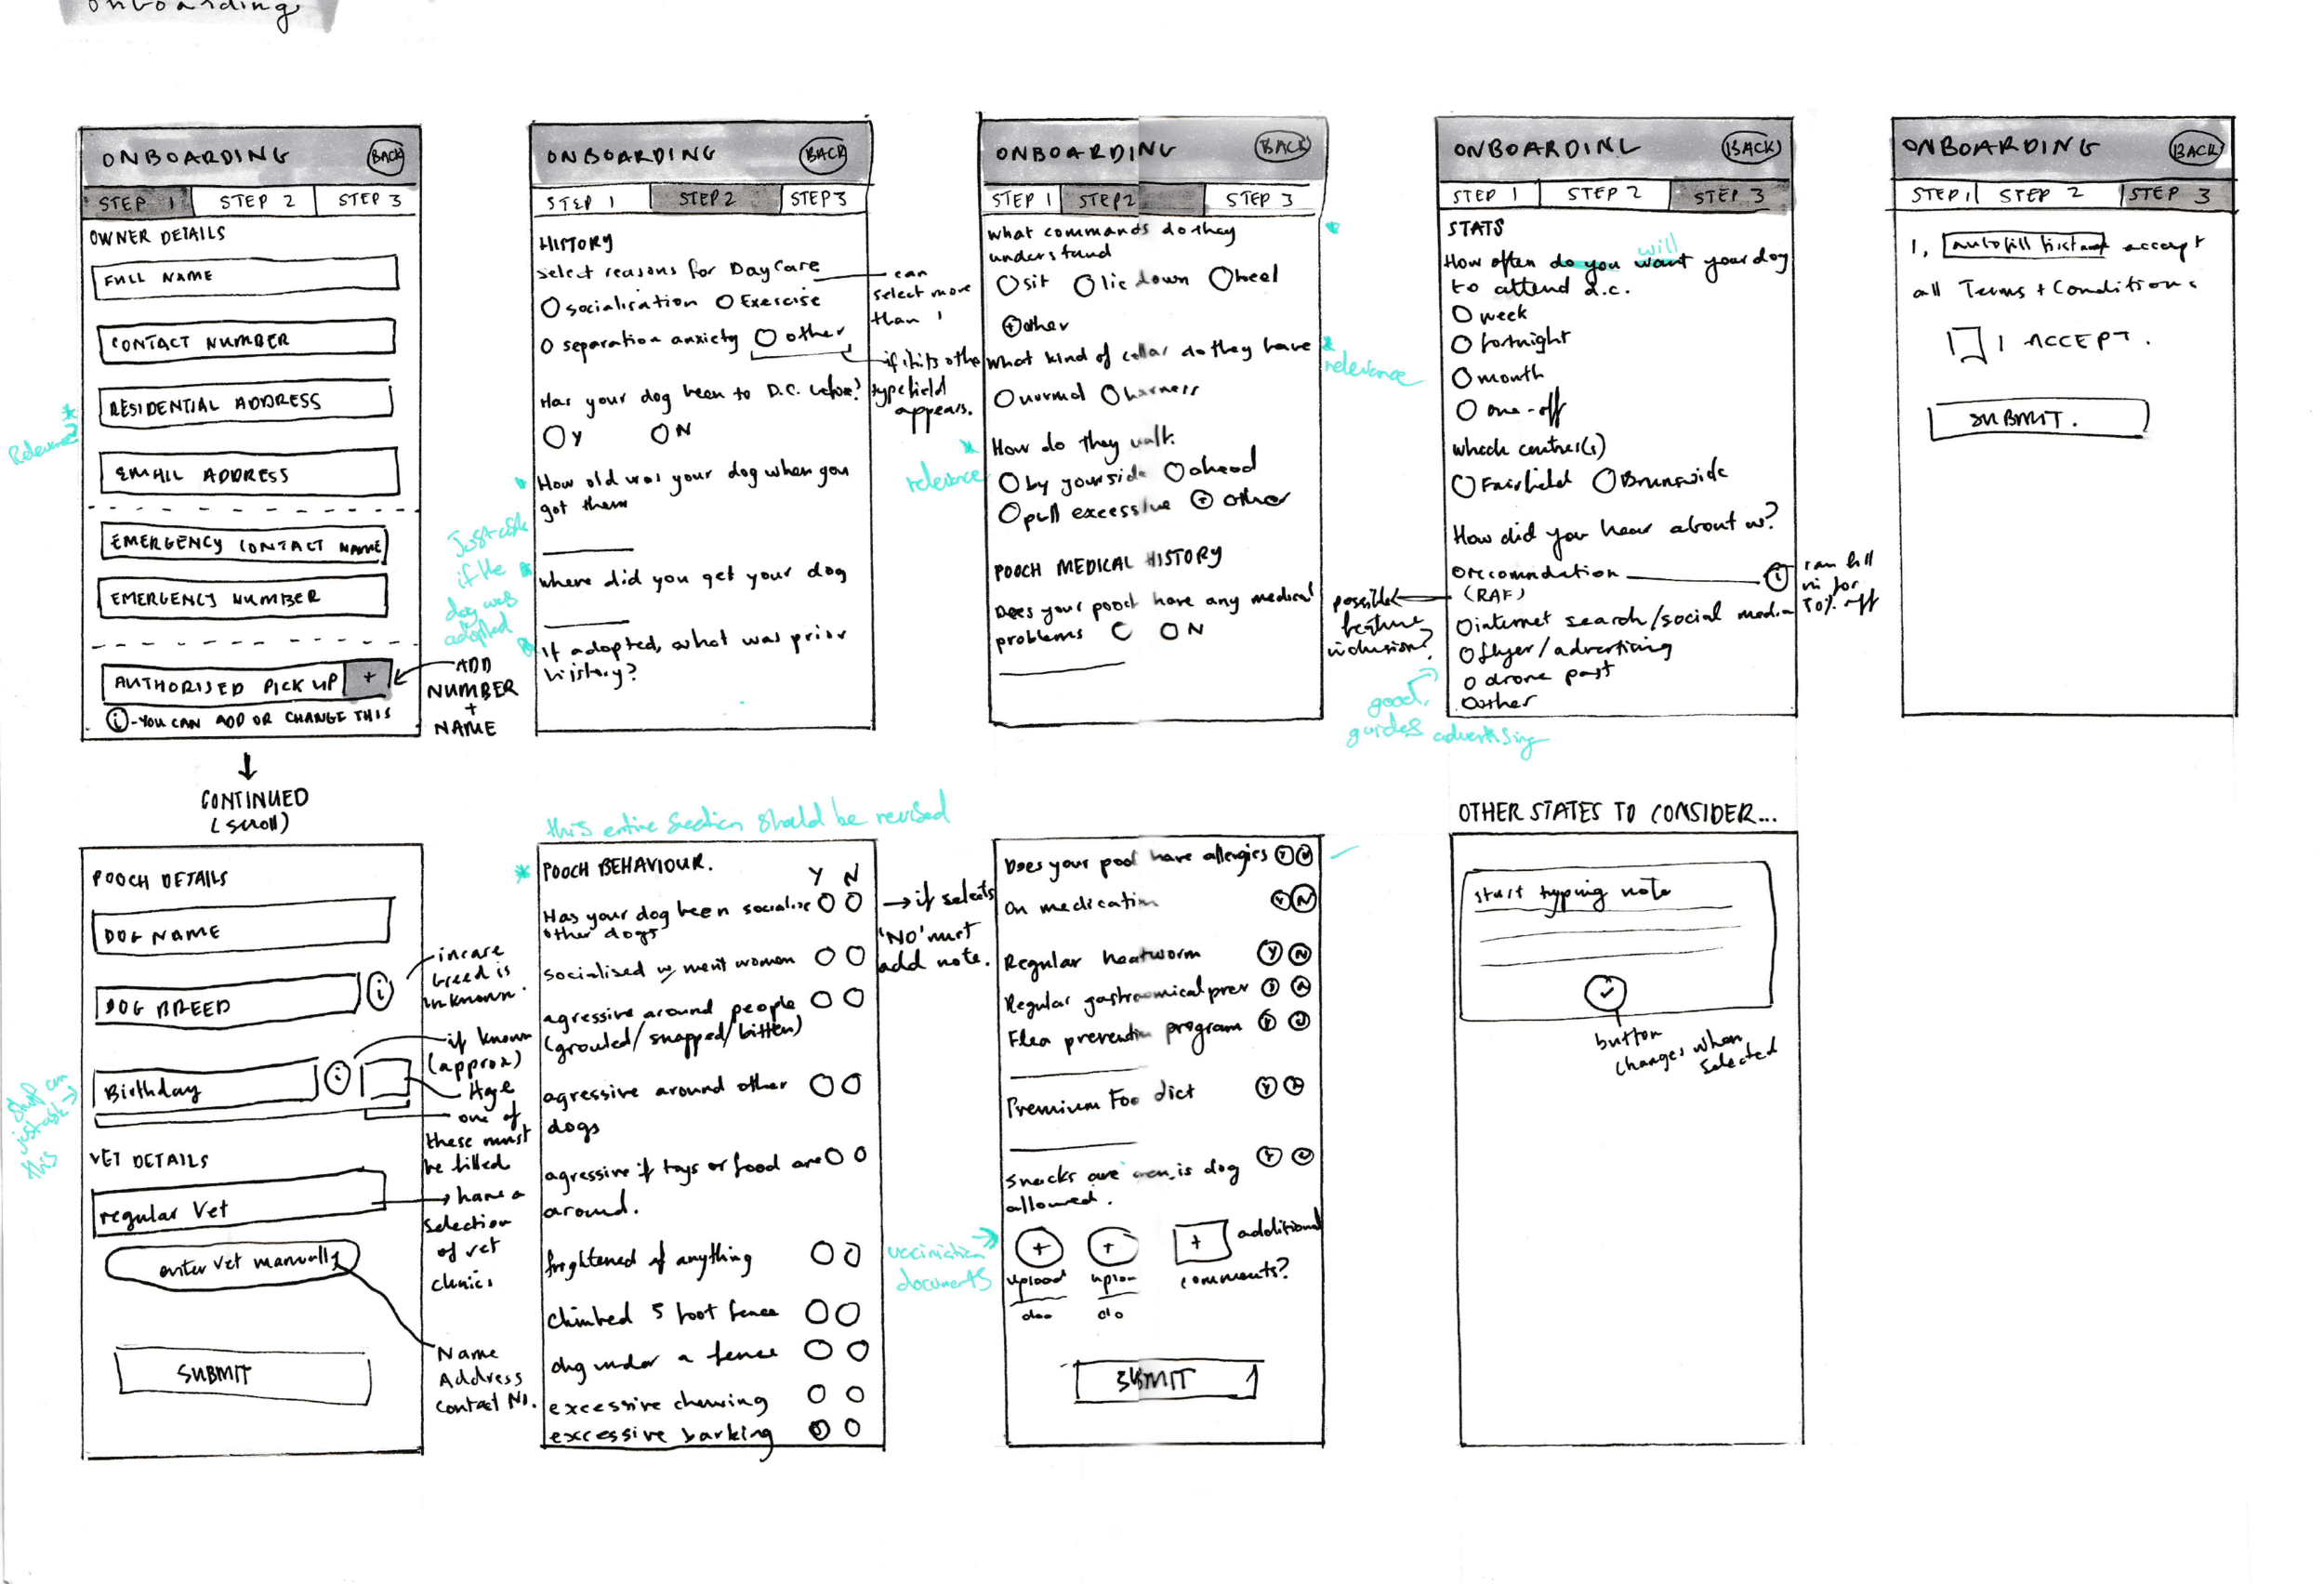 onboarding
ONBOARDING
BACK
STEP 1
STEP 2
STEP 3
OWNER DETAILS
FULL NAME
CONTACT NUMBER
RESIDENTIAL ADDRESS
EMAIL ADDRESS
EMERGENCY CONTACT NAME
EMERGENCY NUMBER
AUTHORISED PICK UP +
i - YOU CAN ADD OR CHANGE THIS
ADD
NUMBER
+
NAME
CONTINUED
(scroll)
ONBOARDING
BACK
STEP 1
STEP 2
STEP 3
HISTORY
select reasons for DayCare
socialisation
Exercise
separation anxiety
other
can
select more
than 1
if hits other
type field
appears.
Has your dog been to D.C. before?
Y
N
How old was your dog when you
got them
where did you get your dog
If adopted, what was prior
history?
Just ask
if the
dog was
adopted
ONBOARDING
BACK
STEP 1
STEP 2
STEP 3
what commands do they
understand
sit
lie down
heel
+ other
what kind of collar do they have
relevance
normal
harness
How do they walk
relevance
by your side
ahead
pull excessive
+ other
POOCH MEDICAL HISTORY
Does your pooch have any medical
problems
N
ONBOARDING
BACK
STEP 1
STEP 2
STEP 3
STATS
will
How often do you want your dog
to attend d.c.
week
fortnight
month
one-off
which centre(s)
Fairfield
Brunswick
How did you hear about us?
(RAF)
i
can fill
in for
10% off
internet search/social media
flyer/advertising
drove past
other
possible
feature
inclusion?
good,
guides advertising
ONBOARDING
BACK
STEP 1
STEP 2
STEP 3
I, accept
all Terms + Conditions
I ACCEPT.
SUBMIT.
POOCH DETAILS
DOG NAME
DOG BREED
i
incase
breed is
unknown.
Birthday
i
if known
(approx)
Age
one of
these must
be filled
just ask
this
VET DETAILS
regular Vet
have a
selection
of vet
clinics
enter vet manually
Name
Address
contact No.
SUBMIT
this entire section should be revised
POOCH BEHAVIOUR.
Y N
Has your dog been socialise
other dogs
→ if selects
'NO' must
add note.
socialised w/ men + women
agressive around people
(grouled/snapped/bitten)
agressive around other
dogs
agressive if toys or food are
around.
frightened of anything
climbed 5 foot fence
dug under a fence
excessive chewing
excessive barking
Does your pooch have allergies Y N
On medication Y N
Regular heatworm Y N
Regular gastrnomical prev
Flea prevention program
Premium Foo diet
snacks are is dog
allowed.
documents
+
upload
doc
+
+
additional
comments?
SUBMIT
OTHER STATES TO CONSIDER...
start typing note
button
changes when
selected